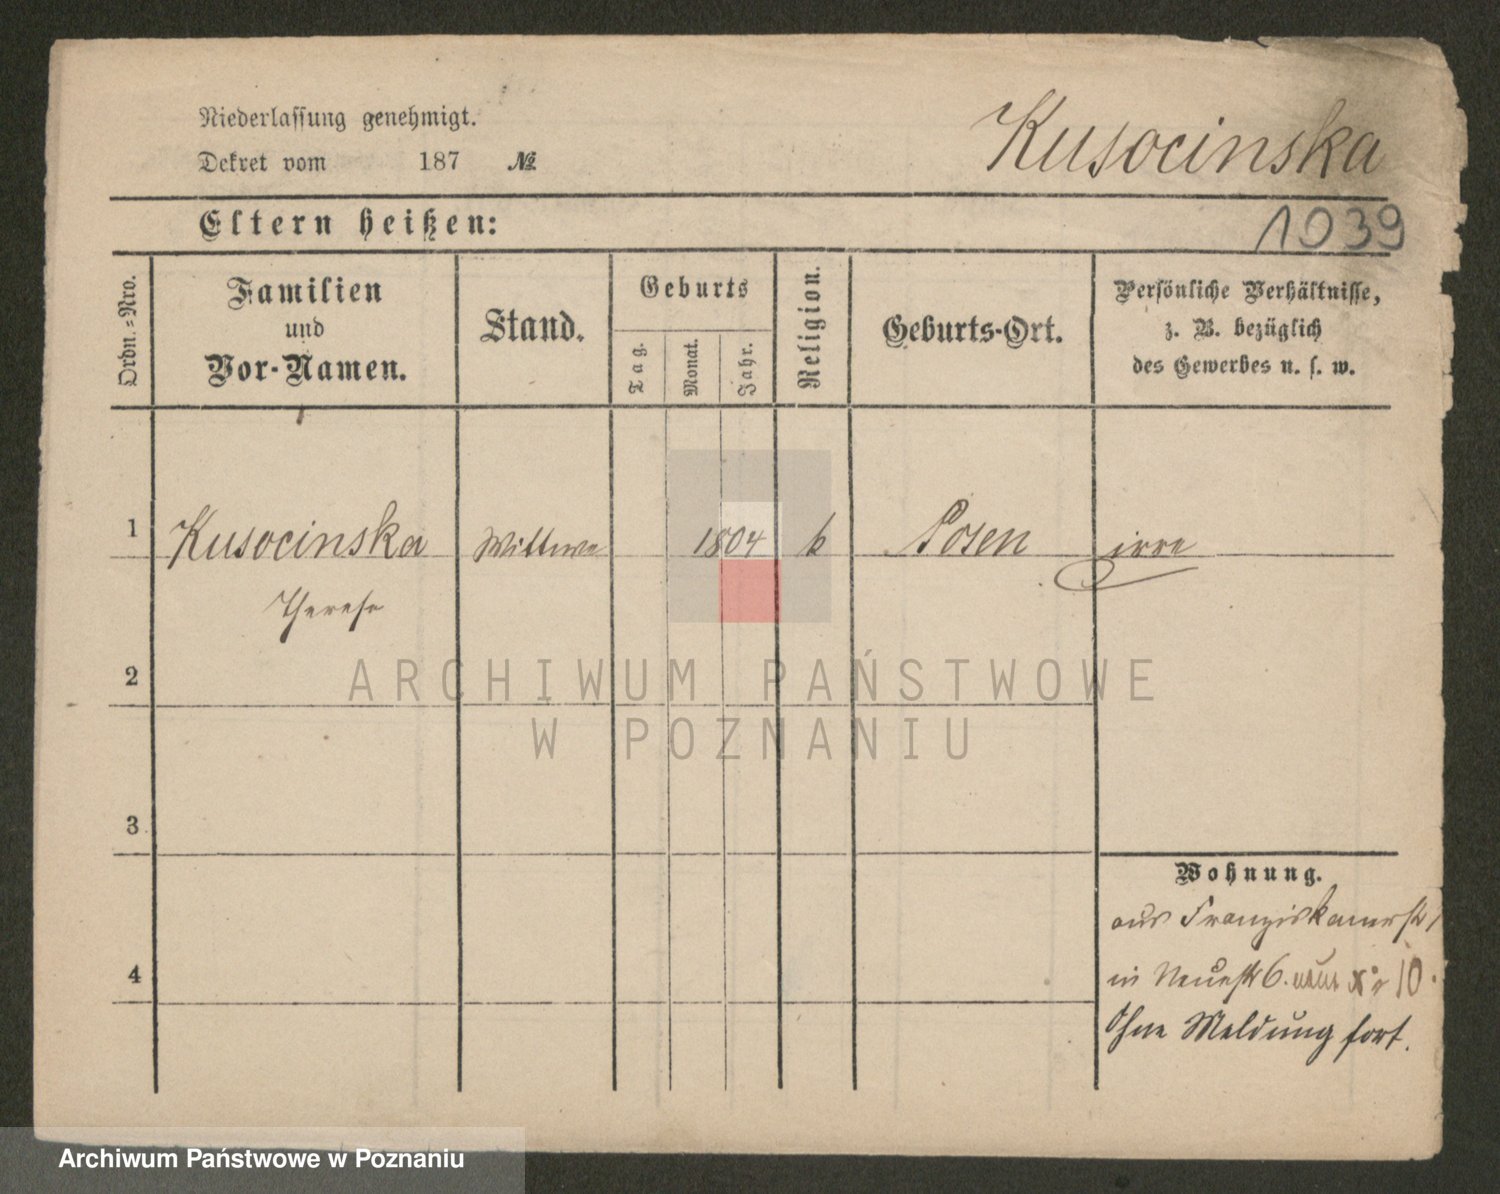 Niederlassung genehmigt.
Dekret vom 187 №
Kusocinska
Eltern heißen:
1039
Ordn.-Nro.
Familien
und
Vor-Namen.
Stand.
Geburts
Tag.
Monat.
Jahr.
Religion.
Geburts-Ort.
Persönliche Verhältnisse,
z. B. bezüglich
des Gewerbes u. s. w.
1 Kusocinska Wittwe 1804 k Posen irre
Therese
2
3
4
Wohnung.
aus Franziskanerstr 1
in Neuestr 6. neue No 10.
Ohne Meldung fort.
ARCHIWUM PAŃSTWOWE
W POZNANIU
Archiwum Państwowe w Poznaniu